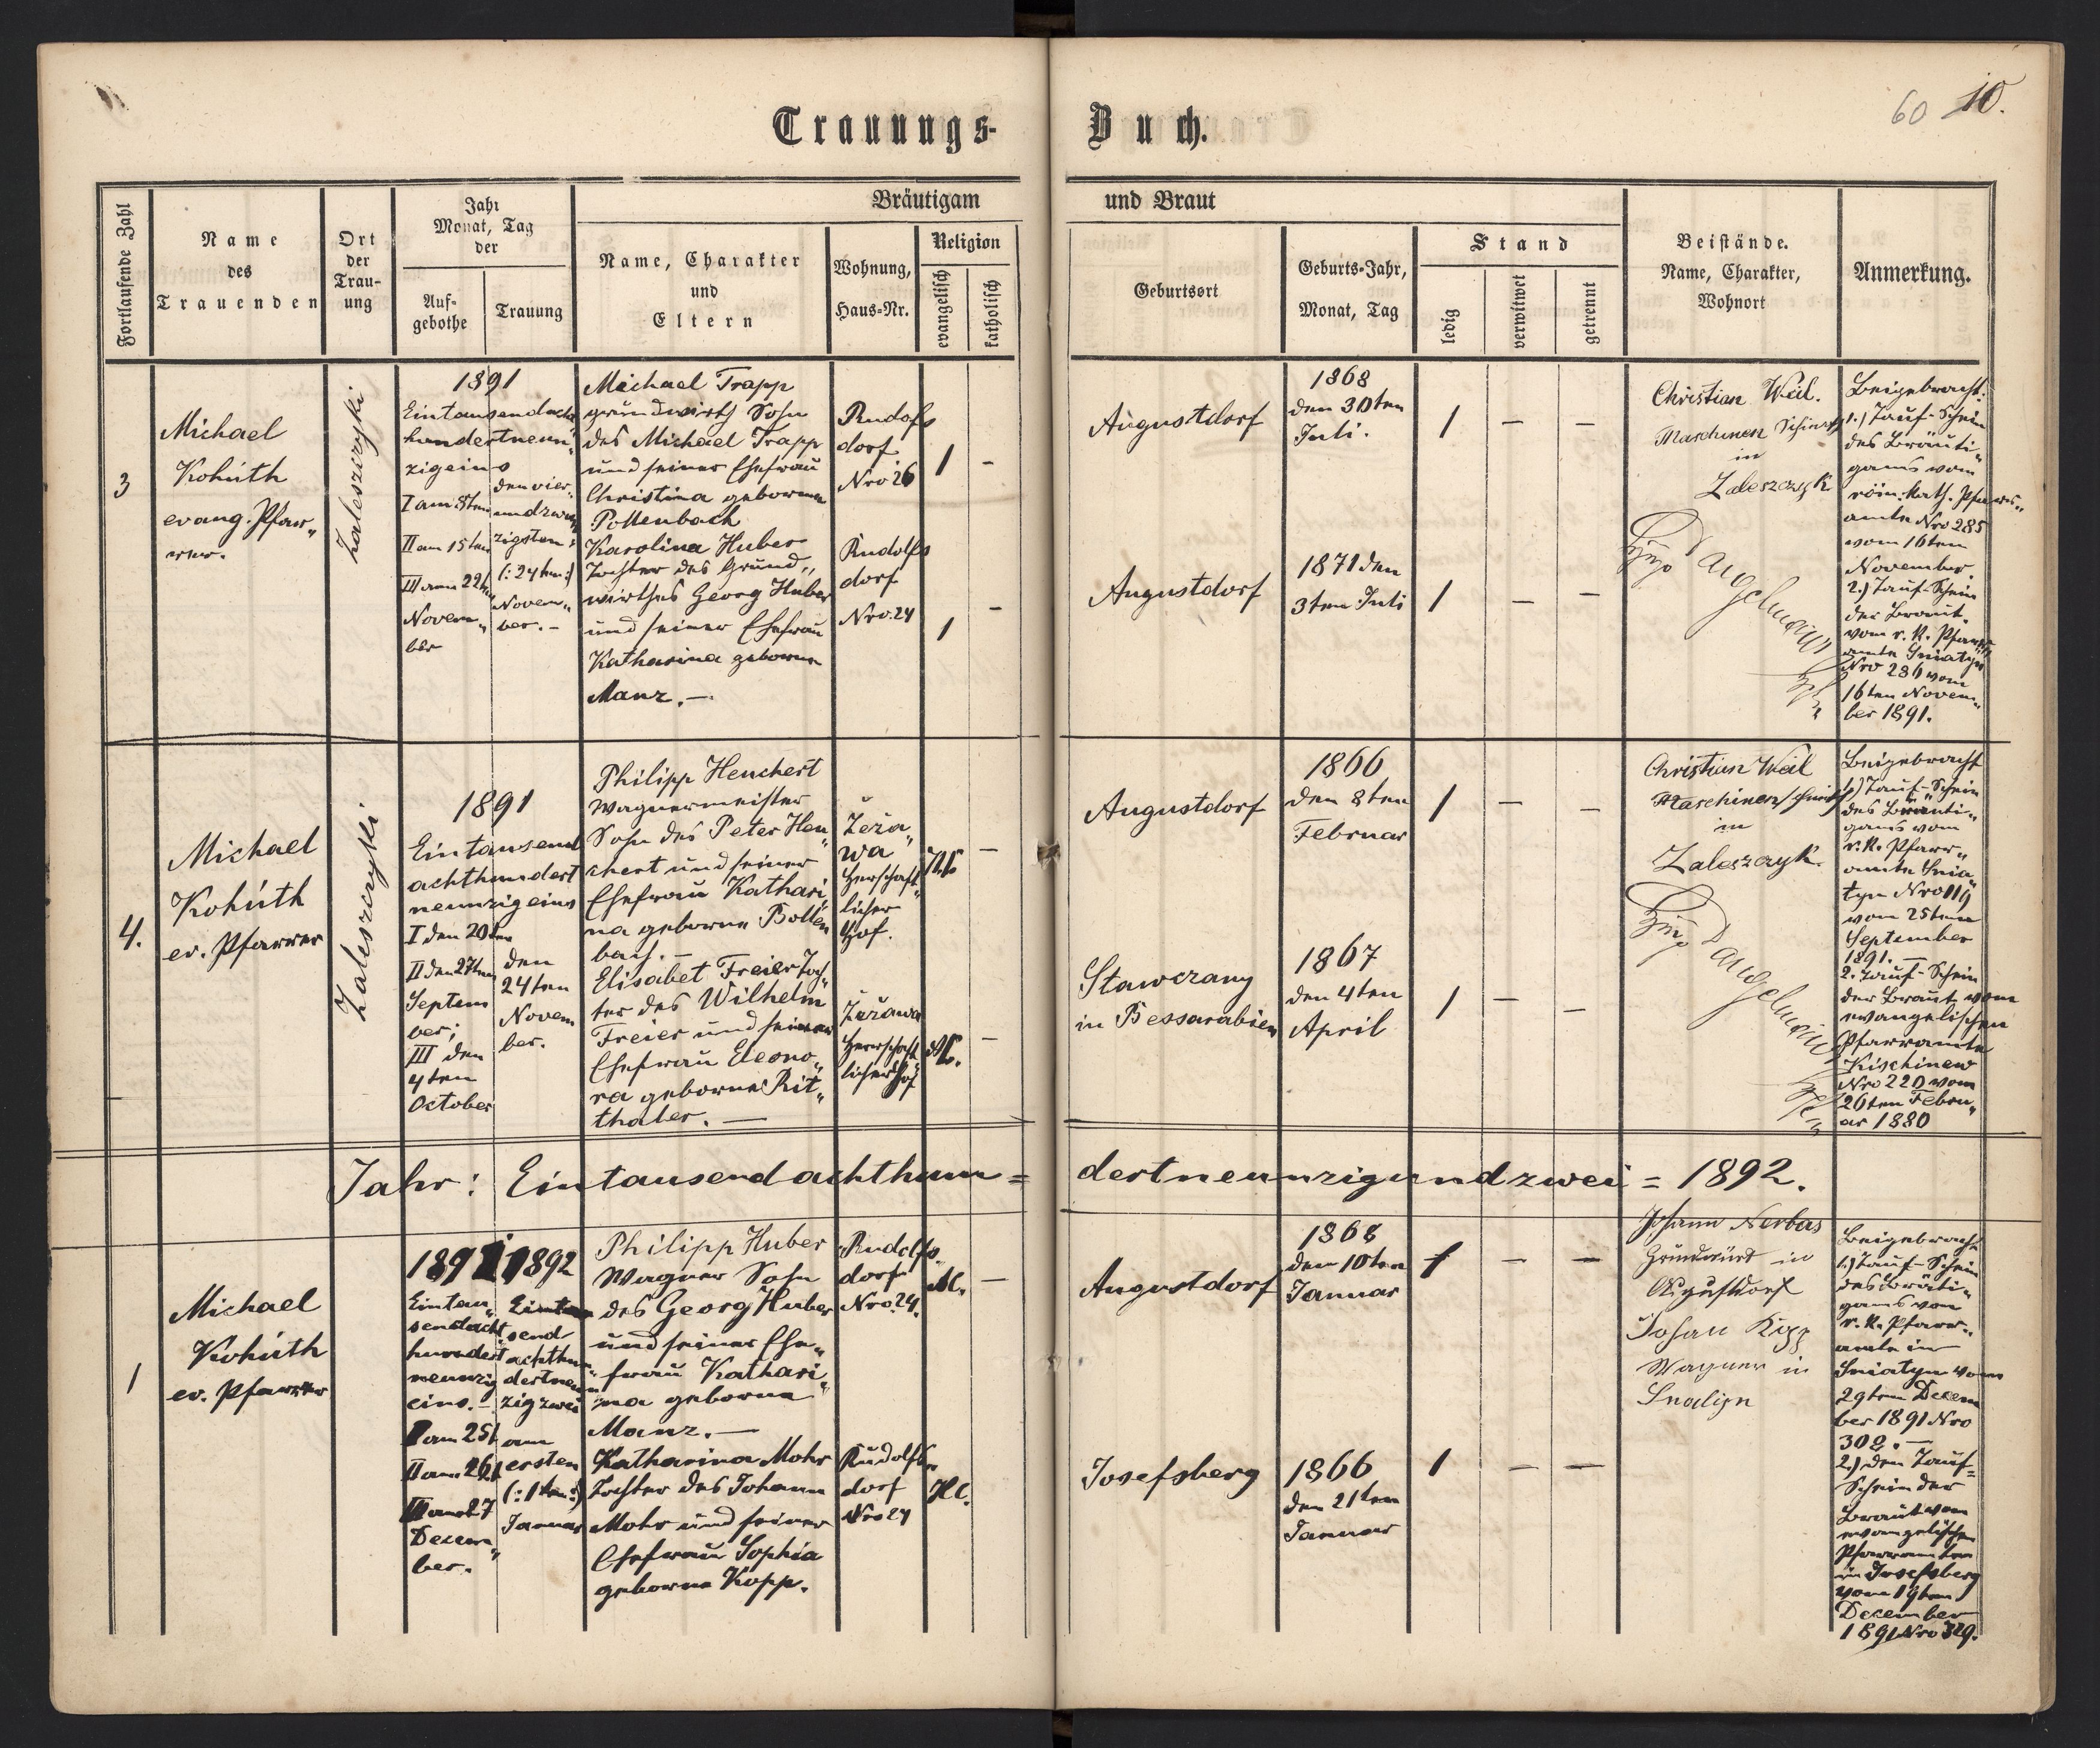 60 10.
Trauungs-Buch.
Fortlaufende Zahl
Name
des
Trauenden
Ort
der
Trau-
ung
Jahr
Monat, Tag
der
Auf-
gebothe
Trauung
Bräutigam und Braut
Name, Charakter
und
Eltern
Wohnung,
Haus-Nr.
Religion
evangelisch
katholisch
Geburtsort
Geburts-Jahr,
Monat, Tag
Stand
ledig
verwitwet
getrennt
Beistände.
Name, Charakter,
Wohnort
Anmerkung.
3
Michael
Kohúth
evang. Pfar„
rer.
Zaleszczyki
1891
Eintausendacht
hundertneun„
zigeins
I am 8ten
II am 15ten
III am 22ten
Novem„
ber
den vier„
undzwan
zigsten
(: 24ten :)
Novem„
ber. –
Michael Trapp
grundwirth Sohn
des Michael Trapp
und seiner Ehefrau
Christina geborene
Pottenbach
Karolina Huber
Tochter des Grund„
wirthes Georg Huber
und seiner Ehefrau
Katharina geborene
Manz. –
Rudolfs
dorf
Nro 26
Rudolfs
dorf
Nro. 24
1 –
1 –
Augustdorf
1868
den 30ten
Juli.
1 – –
Augustdorf
1871 den
3ten Juli
1 – –
Christian Weil.
Maschinen
in
Zaleszczyk
Beigebracht:
1.) Tauf-Schein
des Bräuti„
gams vom
röm. kath. Pfarr„
amte Nro 285
vom 16ten
November.
2.) Tauf-Schein
der Braut
vom r. k. Pfarr„
amte Sniatyn
Nro 286 vom
16ten Novem„
ber 1891.
4.
Michael
Kohúth
ev. Pfarrer
Zaleszczyki
1891
Eintausend
achthundert
neunzigeins
I den 20ten
II den 27ten
Septem
ber;
III den
4ten
October
den
24ten
Novem
ber.
Philipp Henchert
Wagnermeister
Sohn des Peter Hen„
chert und seiner
Ehefrau Kathari„
na geborene Bollen
bach. –
Elisabet Freier Toch„
ter des Wilhelm
Freier und seiner
Ehefrau Eleono„
ra geborne Rit„
thaler. –
Zeza„
wa
Herschaft„
licher
Hof.
Zuzawa
Herrschaft
licher Hof
–
–
Augustdorf
1866
den 8ten
Februar
1 – –
Stawczany
in Bessarabien
1867
den 4ten
April
1 – –
Christian Weil
in
Zaleszczyk.
Beigebracht
1.) Tauf-Schein
des Bräuti„
gams vom
r. k. Pfarr„
amte Snia„
tyn Nro 119
vom 25ten
September
1891. –
2. Tauf-Schein
der Braut vom
evangelischen
Pfarramte
Kischinew
Nro 220 vom
26ten Febru„
ar 1880
Jahr: Eintausendachthun= dertneunzigundzwei = 1892.
1
Michael
Kohúth
ev. Pfarrer
1891
Eintau„
sendacht
hundert
neunzig
eins. –
I am 25t
II am 26t
III am 27
Decem„
ber.
1892
send
achthun„
dertneun
zigzwei
am
ersten
(: 1ten :)
Januar
Philipp Huber
Wagner Sohn
des Georg Huber
und seiner Ehe„
frau Kathari„
na geborene
Manz. –
Katharina Mohr
Tochter des Johann
Mohr und seiner
Ehefrau Sophia
geborene Kopp.
Rudolfs„
dorf
Nro. 24.
Rudolfs„
dorf
Nro 24
A.C. –
H.C.
Augustdorf
1868
den 10ten
Januar
1 – –
Josefsberg
1866
den 21ten
Januar
1 – –
Johann Nerbas
Grundwirt in
Augustdorf
Johan Kopp
Wagner in
Sniatyn
Beigebracht
1.) Tauf-Schein
des Bräuti„
gams vom
r. k. Pfarr„
amte in
Sniatyn vom
29ten Decem
ber 1891 Nro
302. –
2.) den Tauf=
Schein der
Braut vom
evangelischen
Pfarramte
in Josefsberg
vom 19ten
December
1891 Nro 329.